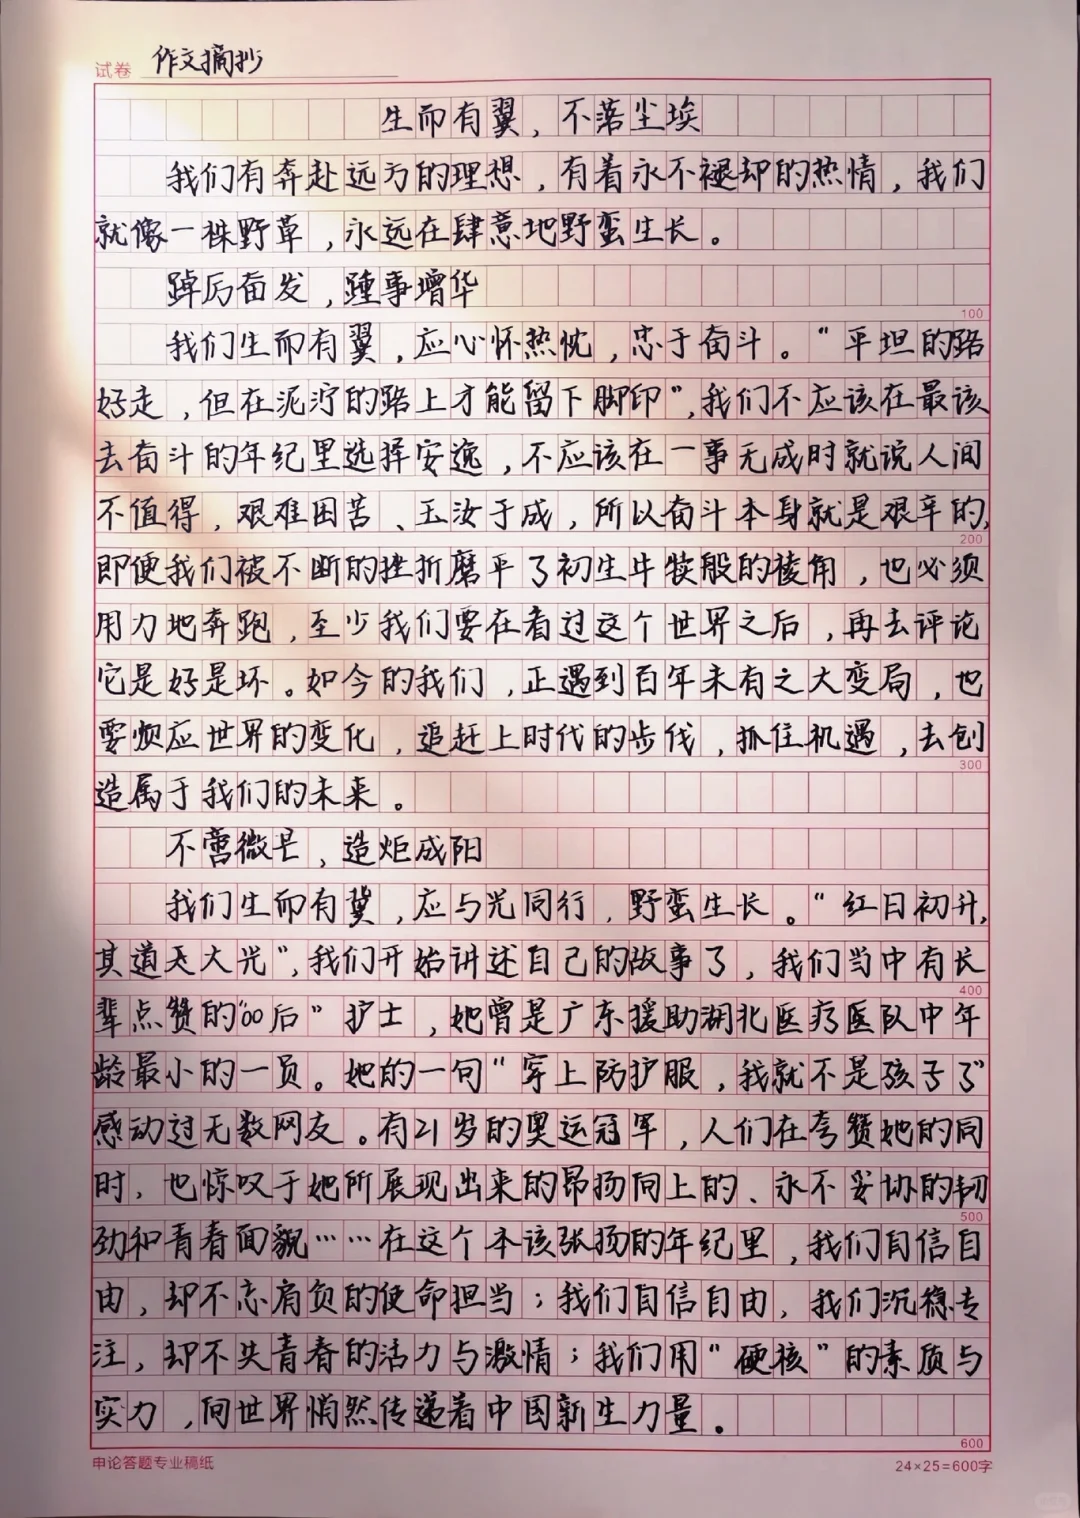 试卷 作文摘抄
生而有翼，不落尘埃
我们有奔赴远方的理想，有着永不褪却的热情，我们
就像一株野草，永远在肆意地野蛮生长。
踔厉奋发，踵事增华
100
我们生而有翼，应心怀热忱，忠于奋斗。“平坦的路
好走，但在泥泞的路上才能留下脚印”，我们不应该在最该
去奋斗的年纪里选择安逸，不应该在一事无成时就说人间
不值得，艰难困苦、玉汝于成，所以奋斗本身就是艰辛的，
200
即便我们被不断的挫折磨平了初生牛犊般的棱角，也必须
用力地奔跑，至少我们要在看过这个世界之后，再去评论
它是好是坏。如今的我们，正遇到百年未有之大变局，也
要顺应世界的变化，追赶上时代的步伐，抓住机遇，去创
300
造属于我们的未来。
不啻微芒，造炬成阳
我们生而有翼，应与光同行，野蛮生长。“红日初升，
其道大光”，我们开始讲述自己的故事了，我们当中有长
400
辈点赞的“00后”护士，她曾是广东援助湖北医疗医队中年
龄最小的一员。她的一句“穿上防护服，我就不是孩子了”
感动过无数网友。有21岁的奥运冠军，人们在夸赞她的同
时，也惊叹于她所展现出来的昂扬向上的、永不妥协的韧
500
劲和青春面貌……在这个本该张扬的年纪里，我们自信自
由，却不忘肩负的使命担当；我们自信自由，我们沉稳专
注，却不失青春的活力与激情；我们用“硬核”的素质与
实力，向世界悄然传递着中国新生力量。
600
申论答题专业稿纸 24×25=600字